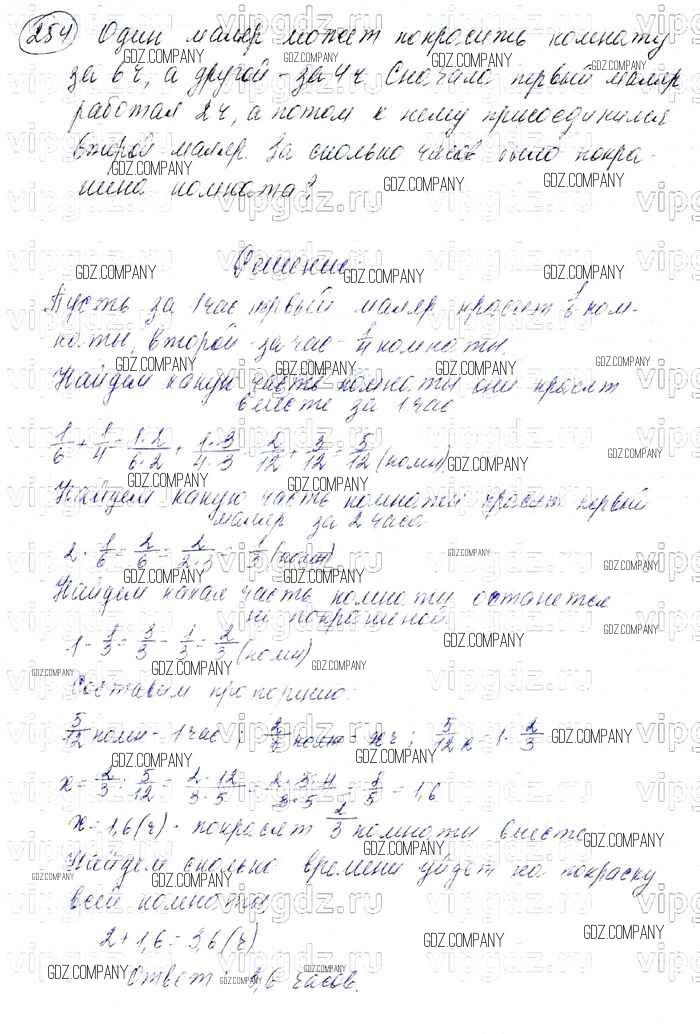 254 Один маляр может покрасить комнату
за 6 ч, а другой - за 4 ч. Сначала первый маляр
работал 2 ч, а потом к нему присоединился
второй маляр. За сколько часов была покра-
шена комната?
Решение
Пусть за 1 час первый маляр красит 1/6 ком-
наты, второй - за час - 1/4 комнаты.
Найдем какую часть комнаты они красят
вместе за 1 час
1/6 + 1/4 = 1·2/6·2 + 1·3/4·3 = 2/12 + 3/12 = 5/12 (комн)
Найдем какую часть комнаты красит первый
маляр за 2 часа
2 · 1/6 = 2/6 = 2/2·3 = 1/3 (комн)
Найдем какая часть комнаты останется
не покрашеной.
1 - 1/3 = 3/3 - 1/3 = 2/3 (комн)
Составим пропорцию:
5/12 комн - 1 час ; 2/3 комн - x ч ; 5/12 x = 1 · 2/3
x = 2/3 : 5/12 = 2·12/3·5 = 2·3·4/3·5 = 8/5 = 1,6
x = 1,6 (ч) - покрасят 2/3 комнаты вместе
Найдем сколько времени уйдет на покраску
всей комнаты
2 + 1,6 = 3,6 (ч)
Ответ: 3,6 часов.
GDZ.COMPANY
vipgdz.ru